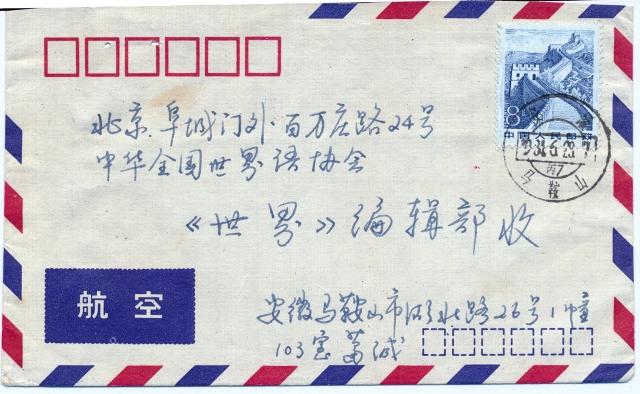 8
中国人民邮政
马鞍山
北京阜城门外百万庄路24号
中华全国世界语协会
《世界》编辑部收
航空
安徽马鞍山市湖北路26号1幢
103室